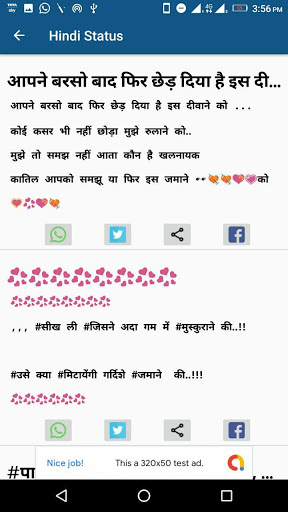 TATA sky
4G
3:56 PM
Hindi Status
आपने बरसो बाद फिर छेड़ दिया है इस दी...
आपने बरसो बाद फिर छेड़ दिया है इस दीवाने को ...
कोई कसर भी नहीं छोड़ा मुझे रुलाने को..
मुझे तो समझ नहीं आता कौन है खलनायक
कातिल आपको समझू या फिर इस जमाने 👀💘💘💖💖को
💗💞💖💘
💞💞💞💞💞💞💞💞💞💞
💞💞💞💞💞💞💞💞💞
,,, #सीख ली #जिसने अदा गम में #मुस्कुराने की..!!
#उसे क्या #मिटायेंगी गर्दिशे #जमाने की..!!!
💞💞💞💞💞💞💞
Nice job!
This a 320x50 test ad.
#पा
,...